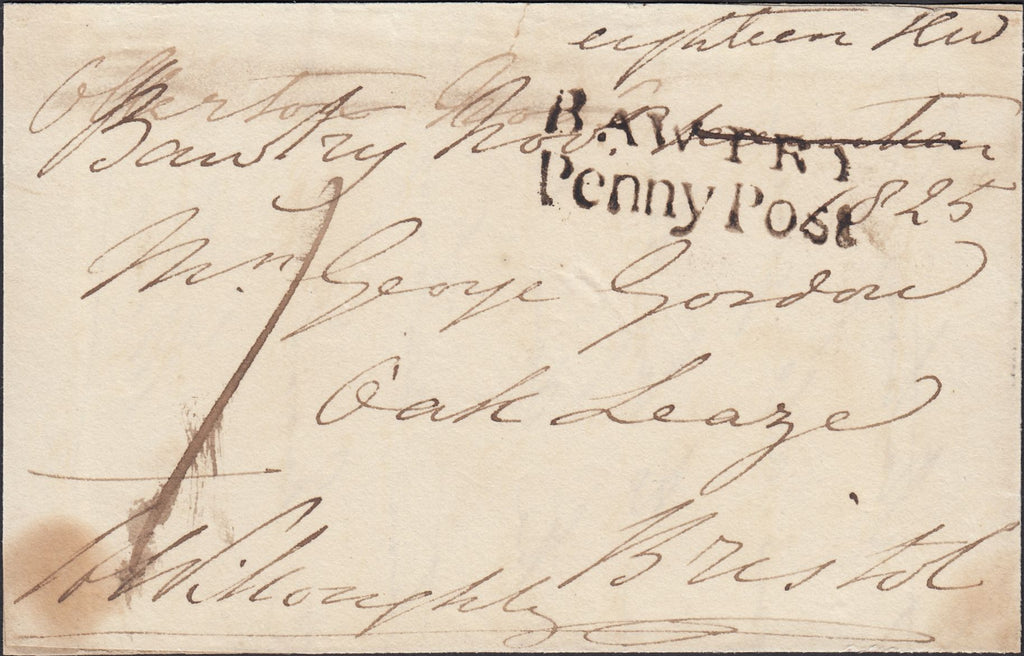 eighteen
Bawtry Nov.
BAWTRY
Penny Post
1825
Mr. George Gordon
Oak Leaze
Bristol
Willoughby